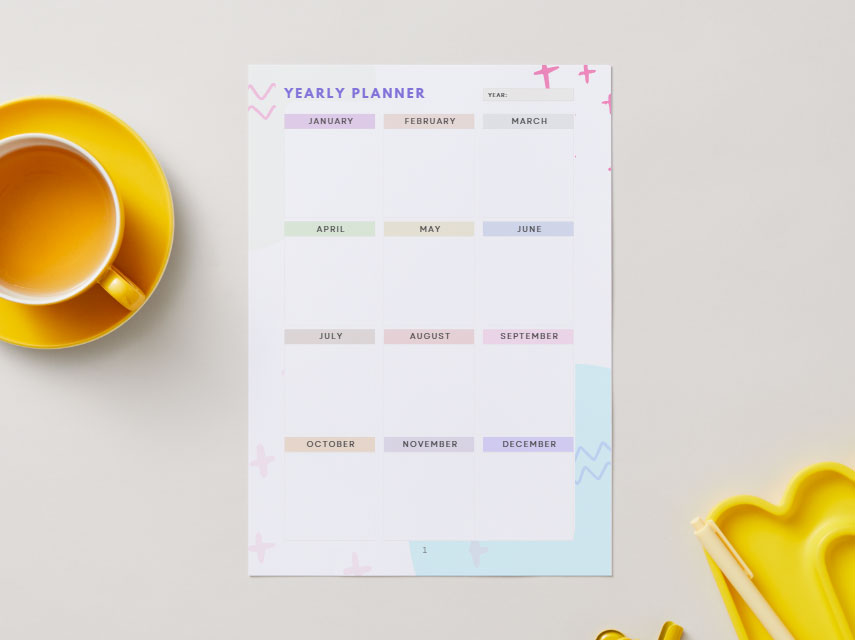 YEARLY PLANNER
YEAR:
JANUARY FEBRUARY MARCH
APRIL MAY JUNE
JULY AUGUST SEPTEMBER
OCTOBER NOVEMBER DECEMBER
1